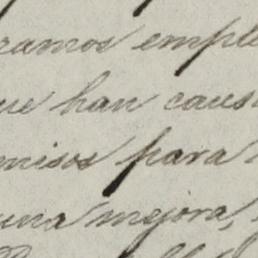 ramos emple
ue han caus
misos para
una mejora,